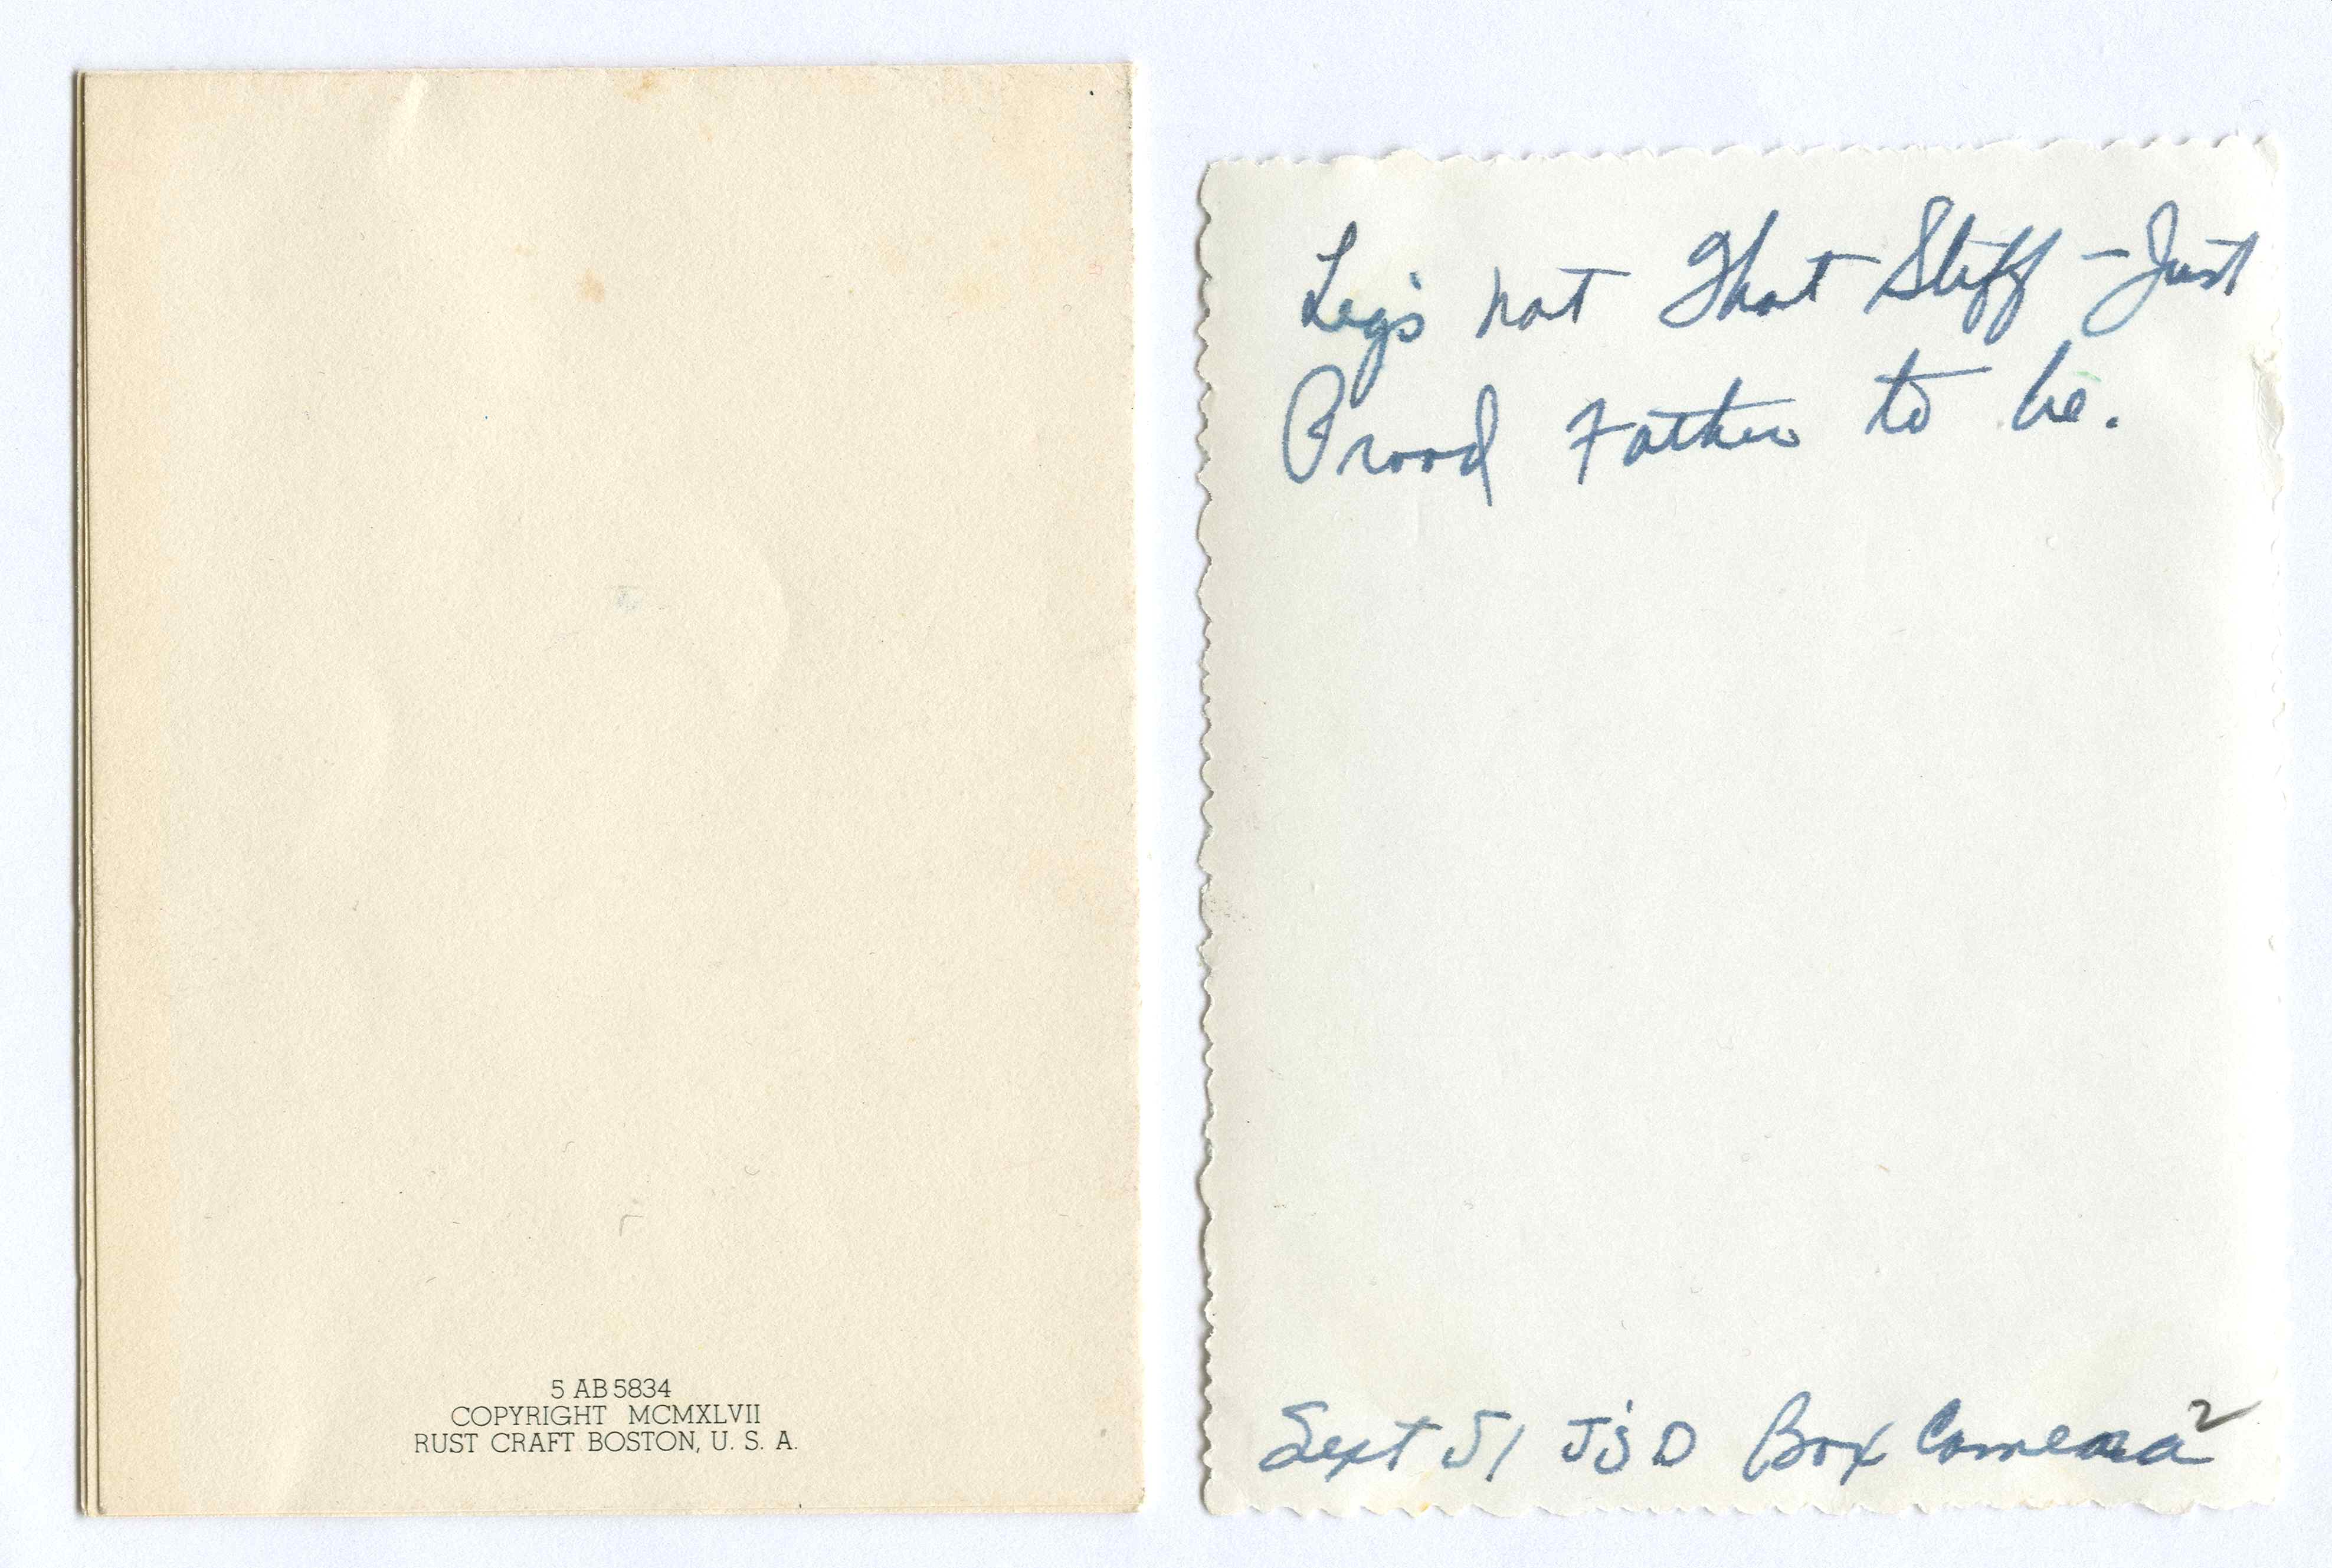 5 AB 5834
COPYRIGHT MCMXLVII
RUST CRAFT BOSTON, U. S. A.
Leg's not That Stiff - Just
Prood Father to be.
Sept 51 J's D Box Camera
2